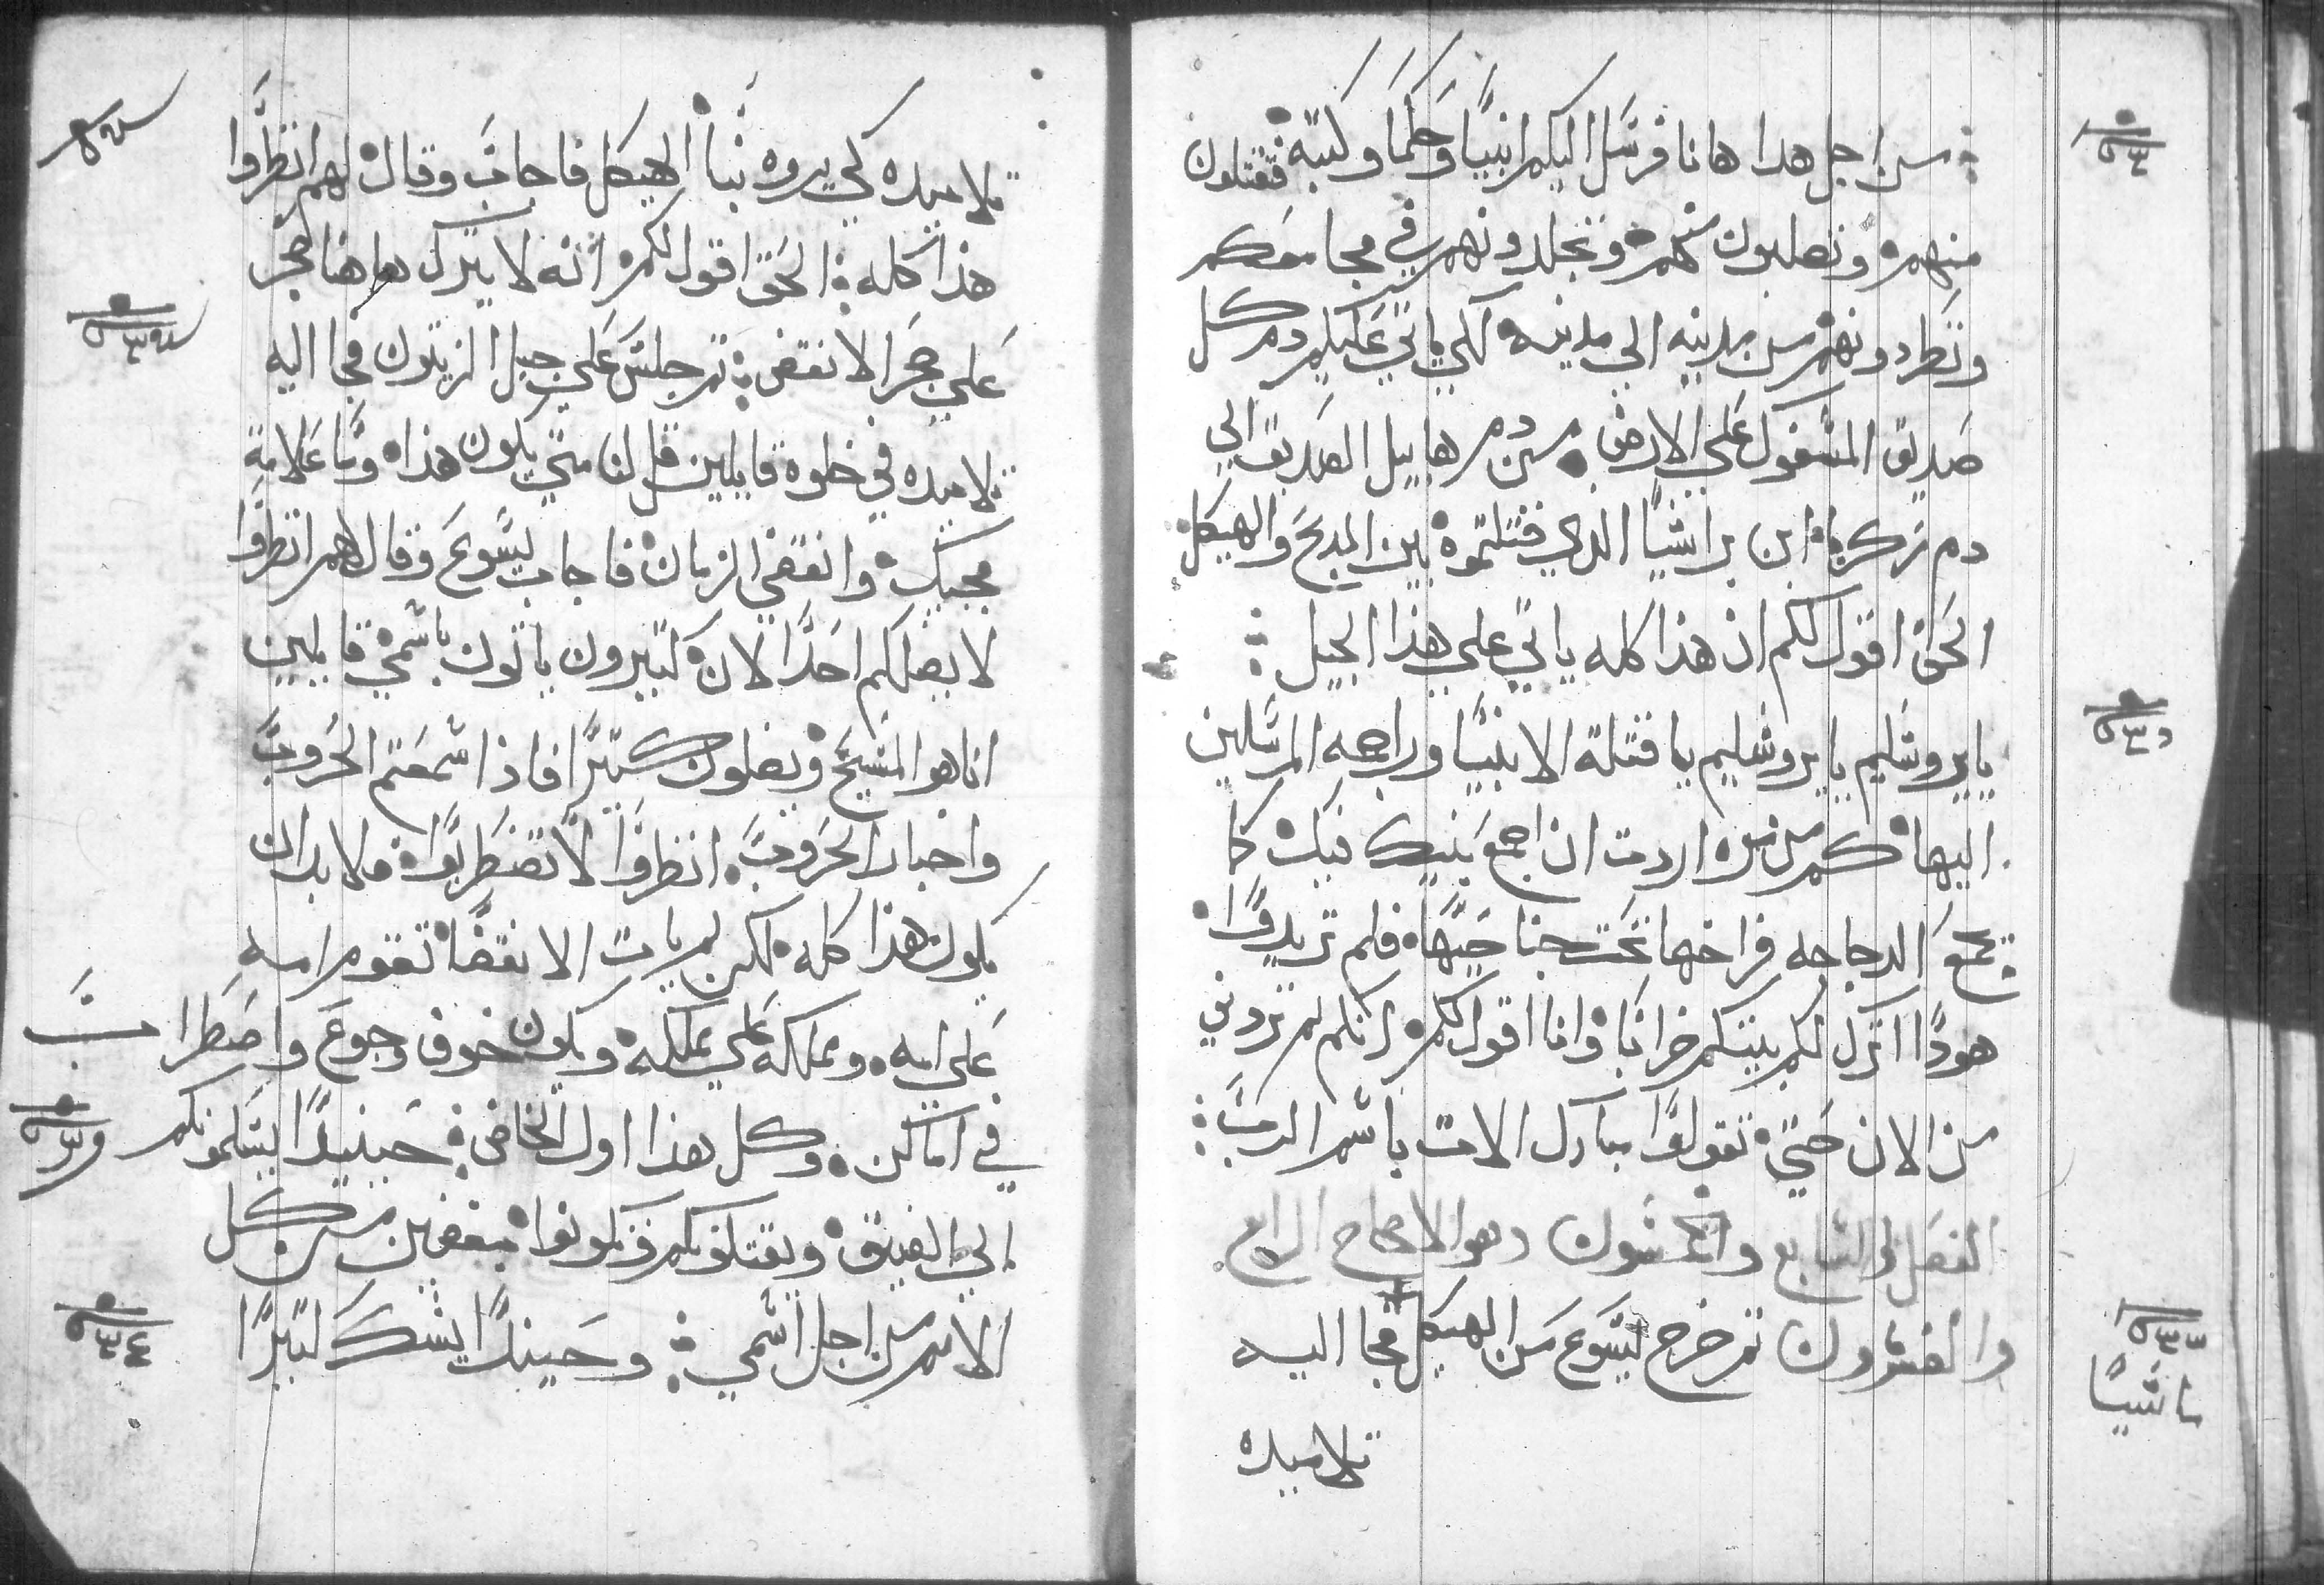 من اجل هدا هانا فرسل اليكم انبيا وحكما وكتبه فتقتلون
منهم وتصلبون منهم وتجلدونهم في مجامعكم
وتطردونهم من مدينه الي مدينه لكي ياتي عليكم دم كل
صديق المسفوك علي الارض من دم هابيل الصديق الي
دم زكريا ابن براشيا الدي قتلتموه بين المدبح والهيكل
الحق اقول لكم ان هذا كله ياتي علي هذا الجيل
يايروشليم يايروشليم يا قتلة الانبيا وراجمه المرسلين
اليها كم من مره اردت ان اجمع بنيك فيك كما
تجمع الدجاجه فراخها تحت جناحيها فلم تريدوا
هودا اترك لكم بيتكم خرابا وانا اقول لكم انكم لم تروني
من الان حتي تقولوا مبارك الات باسم الرب
الفصل السابع والخمسون وهو الاصحاح الرابع
والعشرون ثم خرج يسوع من الهيكل فجا اليه
تلاميده
تلاميده لكي يروه بنا الهيكل فاجاب وقال لهم انظروا
هذا كله الحق اقول لكم انه لا يترك هاهنا حجر
علي حجر الا نقض ثم جلس علي جبل الزيتون فجا اليه
تلاميده في خلوة قايلين قل لنا متي يكون هذا وما علامة
مجيك وانقضي الزمان فاجاب يسوع وقال لهم انظروا
لا يضلكم احدا لان كتيرون ياتون باسمي قايلين
انا هو المسيح ويضلون كتيرا فاذا سمعتم الحروب
واخبار الحروب انظروا لا تضطربوا فلا بد ان
يكون هذا كله لكن لم يات الانقضا تقوم امه
علي امه ومملكه علي مملكه ويكون خوف وجوع واضطراب
في اماكن وكل هذا اول المخاض حينيدا يسلمونكم
الي الضيق ويقتلونكم وتكونوا مبغضين من كل
الامم من اجل اسمي وحينيدا يشك كتيرا